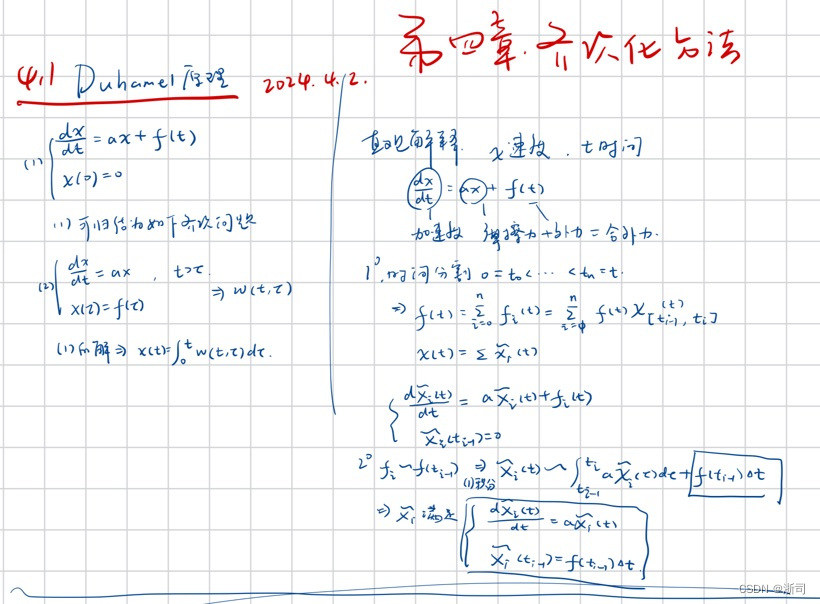 第四章. 齐次化方法
4.1 Duhamel 原理 2024. 4. 2.
(1) { dx/dt = ax + f(t)
x(0)=0
(1) 可归结为如下齐次问题
(2) { dx/dt = ax , t>τ.
x(τ)=f(τ) ⇒ w(t,τ)
(1) 的解 ⇒ x(t)=∫₀ᵗ w(t,τ)dτ.
直观解释. x 速度 . t 时间
dx/dt = ax + f(t)
加速度 摩擦力+外力=合外力.
1°. 时间分割 0=t₀<… <tₙ=t.
⇒ f(t)=Σᵢ₌₀ⁿ fᵢ(t)= Σⁿ f(t) χ_[tᵢ₋₁, tᵢ] (t)
x(t)= Σ x̃ᵢ(t)
{ dx̃ᵢ(t)/dt = a x̃ᵢ(t)+fᵢ(t)
x̃ᵢ(tᵢ₋₁)=0
2° fᵢ ~ f(tᵢ₋₁) ⇒ (1)积分 x̃ᵢ(t) ~ ∫_{tᵢ₋₁}^{tᵢ} a x̃ᵢ(τ)dτ + f(tᵢ₋₁)Δt
⇒ x̃ᵢ 满足 { dx̃ᵢ(t)/dt = a x̃ᵢ(t)
x̃ᵢ(tᵢ₋₁)=f(tᵢ₋₁)Δt
CSDN @浙司